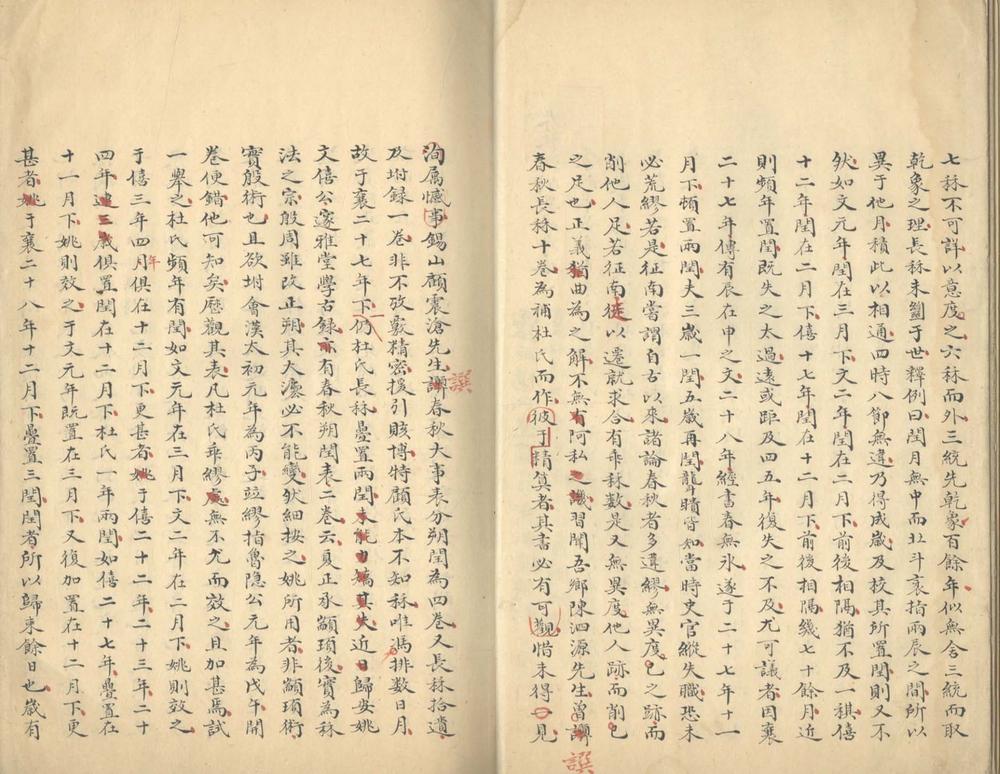 七秝不可詳以意度之六秝而外三統先乾象百餘年似無舍三統而取
乾象之理長秝未觕于世釋例曰閏月無中而北斗衺指兩辰之間所以
異于他月積此以相通四時八節無違乃得成歲及校其所置閏則又不
然如文元年閏在三月下文二年閏在二月下前後相隔猶不及一稘僖
十二年閏在二月下僖十七年閏在十二月下前後相隔幾七十餘月近
則頻年置閏既失之太過遠或距及四五年復失之不及尤可議者因襄
二十七年傳有辰在申之文二十八年經書春無冰遂于二十七年十一
月下頓置兩閏夫三歲一閏五歲再閏聾瞽皆知當時史官縱失職恐未
必荒繆若是征南嘗謂自古以來諸論春秋者多違繆無異度己之跡而
削他人足若征南徒以遷就求合有乖秝數是又無異度他人跡而削己
之足也正義猶曲為之解不無有阿私之譏習聞吾鄉陳泗源先生曾譔
撰
春秋長秝十卷為補杜氏而作彼于精算者其書必有可觀惜未得一見
洵屬憾事錫山顧震滄先生譔春秋大事表分朔閏為四卷又長秝拾遺
撰
及坿錄一卷非不攷覈精密援引賅博特顧氏本不知秝唯馮排數日月
故于襄二十七年下仍杜氏長秝疊置兩閏未能力矯其失近日歸安姚
文僖公邃雅堂學古錄亦有春秋朔閏表二卷云夏正承顓頊後實為秝
法之宗殷周雖改正朔其大灋必不能變然細按之姚所用者非顓頊術
實殷術也且欲坿會漢太初元年為丙子竝繆指魯隱公元年為戊午開
卷便錯他可知矣歷觀其表凡杜氏乖繆處無不尤而效之且加甚焉試
一舉之杜氏頻年有閏如文元年在三月下文二年在二月下姚則效之
于僖三年四月俱在十二月下更甚者姚于僖二十二年二十三年二十
年
四年連三歲俱置閏在十二月下杜氏一年兩閏如僖二十七年疊置在
十一月下姚則效之于文元年既置在三月下又復加置在十二月下更
甚者姚于襄二十八年十二月下疊置三閏閏者所以歸束餘日也歲有